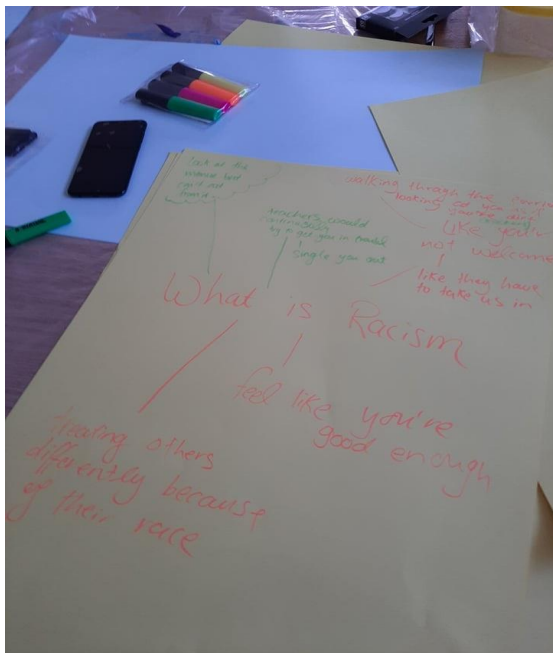 look at the
teachers would
try & get you in trouble
single you out
walking through the
looking at you
like you're
not welcome
like they have
to take us in
What is Racism
feel like you're
good enough
treating others
differently because
of their race